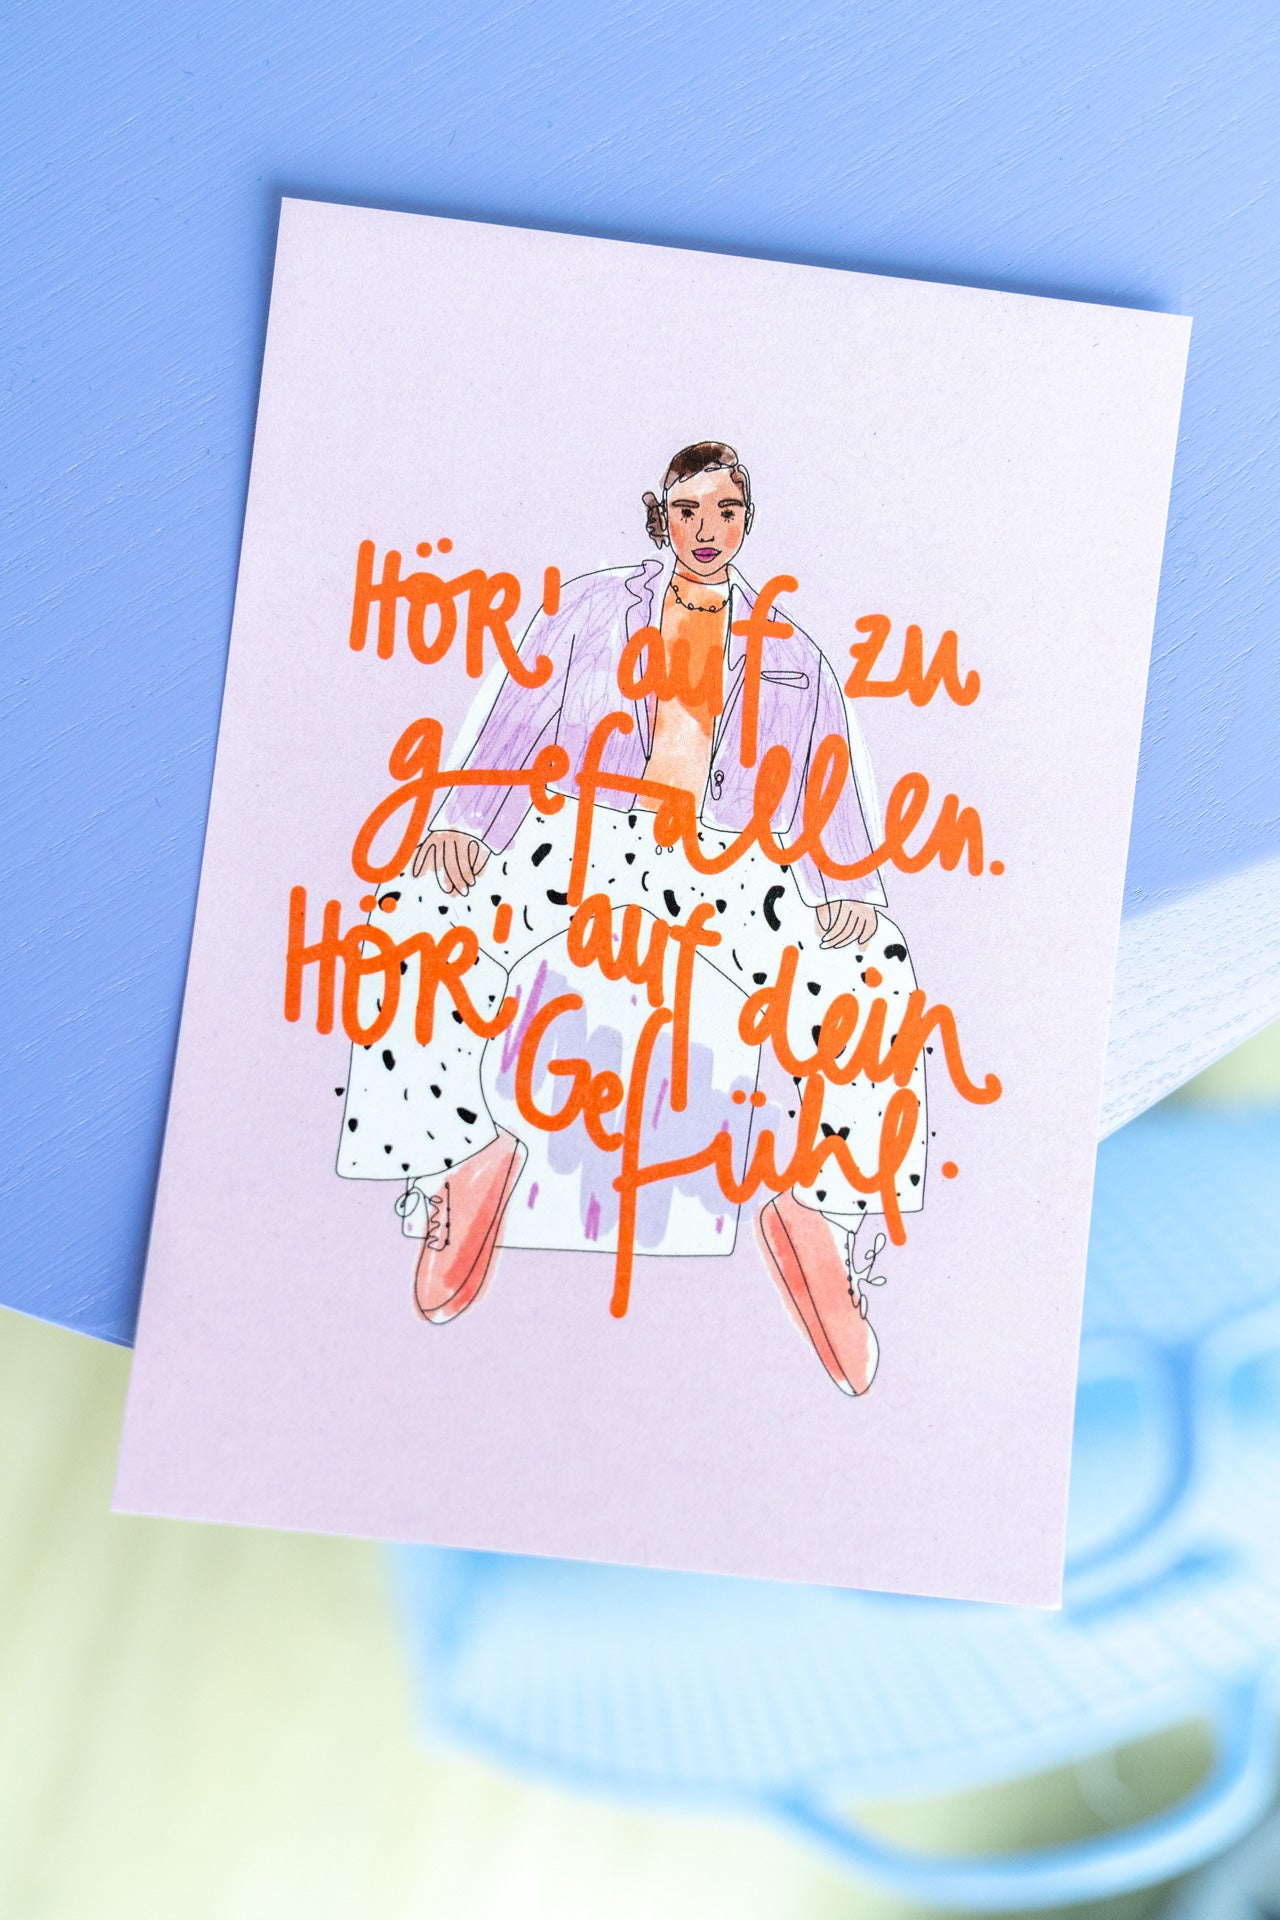 Hör' auf zu
gefallen.
Hör' auf dein
Gefühl.